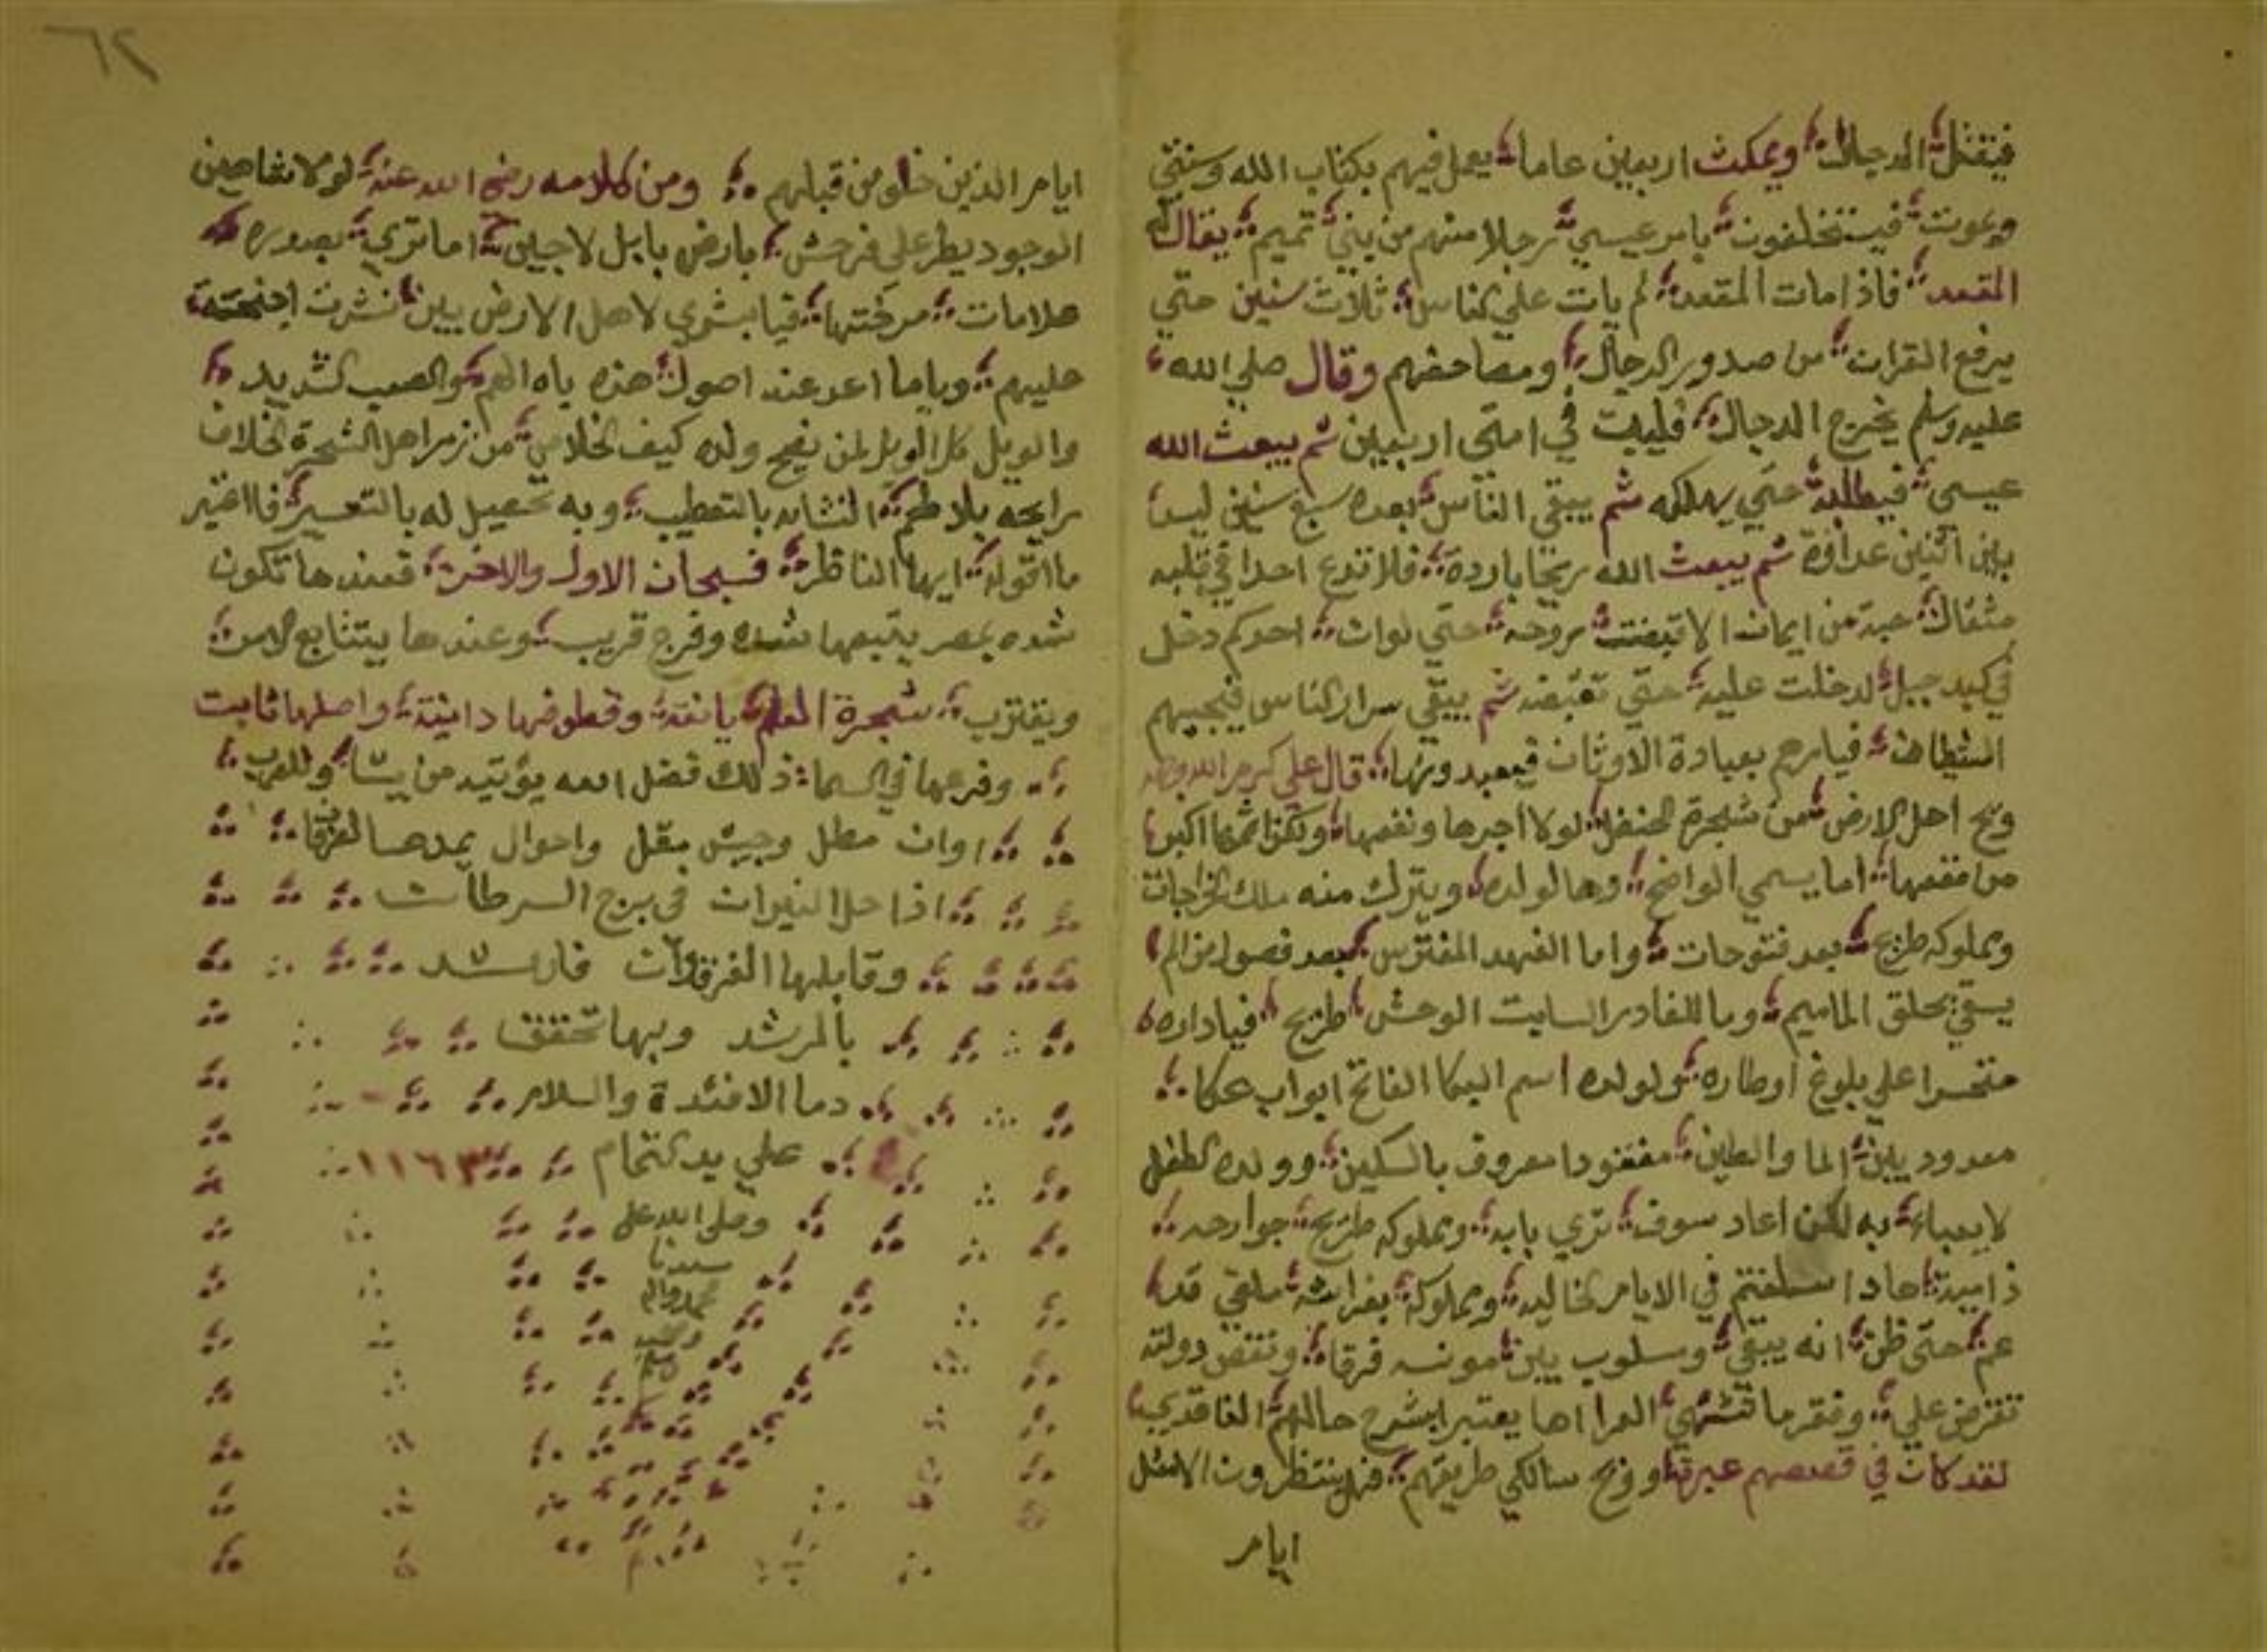 فيقتل الدجال ويمكث اربعين عاما يعمل فيهم بكتاب الله وسنتي
ويموت فيستخلفون بامر عيسي رجلا منهم من بني تميم يقال له
المقعد فاذا مات المقعد لم يات علي الناس ثلاث سنين حتي
يرفع القران من صدور الرجال ومصاحفهم وقال صلي الله
عليه وسلم يخرج الدجال فليبث في امتي اربعين ثم يبعث الله
عيسى فيطلبه حتي يهلكه ثم يبقي الناس بعده سبع سنين ليس
بين اثنين عداوة ثم يبعث الله ريحا باردة فلا تدع احدا في قلبه
مثقال حبة من ايمان الا قبضت روحه حتي لوان احدكم دخل
في كبد جبل لدخلت عليه حتي تقبضه ثم يبقي سرار الناس فيجيبهم
الشيطان فيامرهم بعبادة الاوثان فيعبدونها قال علي كرم الله وجهه
ويح اهل الارض من شجرة الحنظل لولا اجرها ونفعها ولكن اثمها اكبر
من نفعها اما يسمي الواضح وها لولده ويترك منه ملك الخراجات
ومملوكه طريح بعد فتوحات واما الفهد المفترس بعد فصول من الم
يسقي بحلق الماميم وما للغادر السايت الوحش طريح فياداره
متحسرا علي بلوغ اوطاره ولولده اسم البكا الفاتح ابواب عكا
معدود بين الما والطين مفقودا معروف بالسكين وولده الطفل
لا يعباء به لكن اعاد سوف تري بابه ومملوكه طريح جوارحه
اسلفتم في الايام الخاليه ومملوكه بفراشه ملقي قد
عم حتى ظن انه يبقي وسلوب بين مونسه فرقا ونقض دولته
تفرض علي وفقر ما تشتهي يعتبر بشرح حالهم الفاقدي
لقد كان في قصصهم عبرة او ويح سالكي طريقهم فهل ينتظرون الا مثل
ايام
٦٢
ايام الذين خلو من قبلهم ومن كلامه رضي الله عنه لو لا تفاصين
الوجود يطر علي فرحش بارض بابل لاجيين اما تري بصوره
علامات مركبتها فيا بشري لاهل الارض بين نشرت اجنحته
عليهم وياما اعد عند اصول هذه ياه الهم والصب الشديد
والويل كل الويل لمن يفح وله كيف الخلاص من زمر اهل الشجرة الخلاف
رايحه بلاطم النشابه بالتعطيب وبه تحصيل له بالتعسير فاعتبر
ما اقوله ايها الناظر فسبحان الاول والاخر فعندها تكون
شده بمصر يتبعها شده وفرج قريب وعندها يتتابع الامن
ويقترب شجرة العلم يانعة وقطوفها دانية واصلها ثابت
وفرعها في السما ذلك فضل الله يؤتيه من يشا وللعرب
اوان مطل وجيش بقل واحوال يمدها الفرقان
اذا حلا النيران في برج السرطان
وقابلها الفرقدان فارشد
بالمرشد وبها تحقق
دما الافئدة والسلام
علي يد كتمام ١١٦٣
وصلى الله على
سيدنا
محمد واله
وصحبه
وسلم